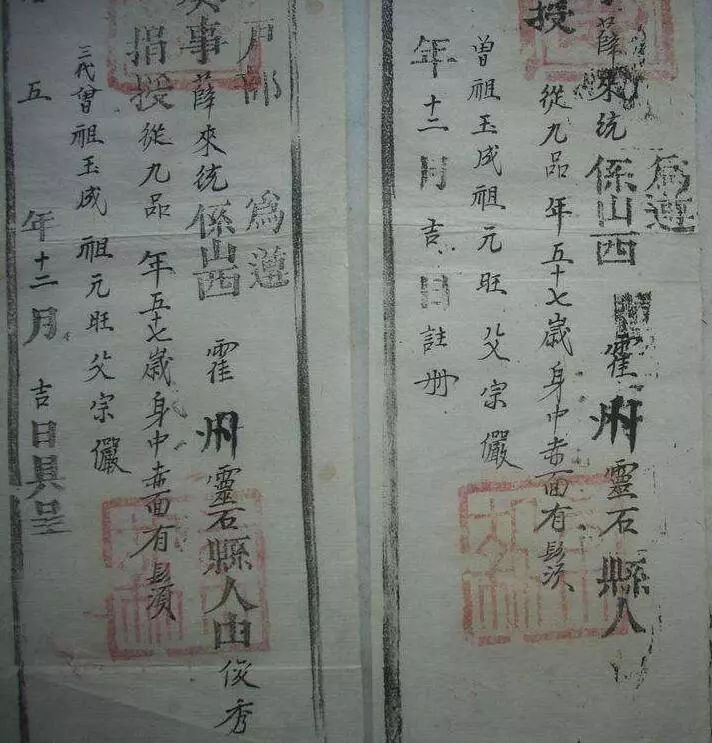 授
薛來統係山西霍州靈石縣人
為遵
從九品年五十七歲身中赤面有鬚
曾祖玉成祖元旺父宗儼
年十二月吉日註冊
戶部
為遵
事薛來統係山西霍州靈石縣人由俊秀
捐授從九品年五十七歲身中赤面有鬚
三代曾祖玉成祖元旺父宗儼
五年十二月吉日具呈